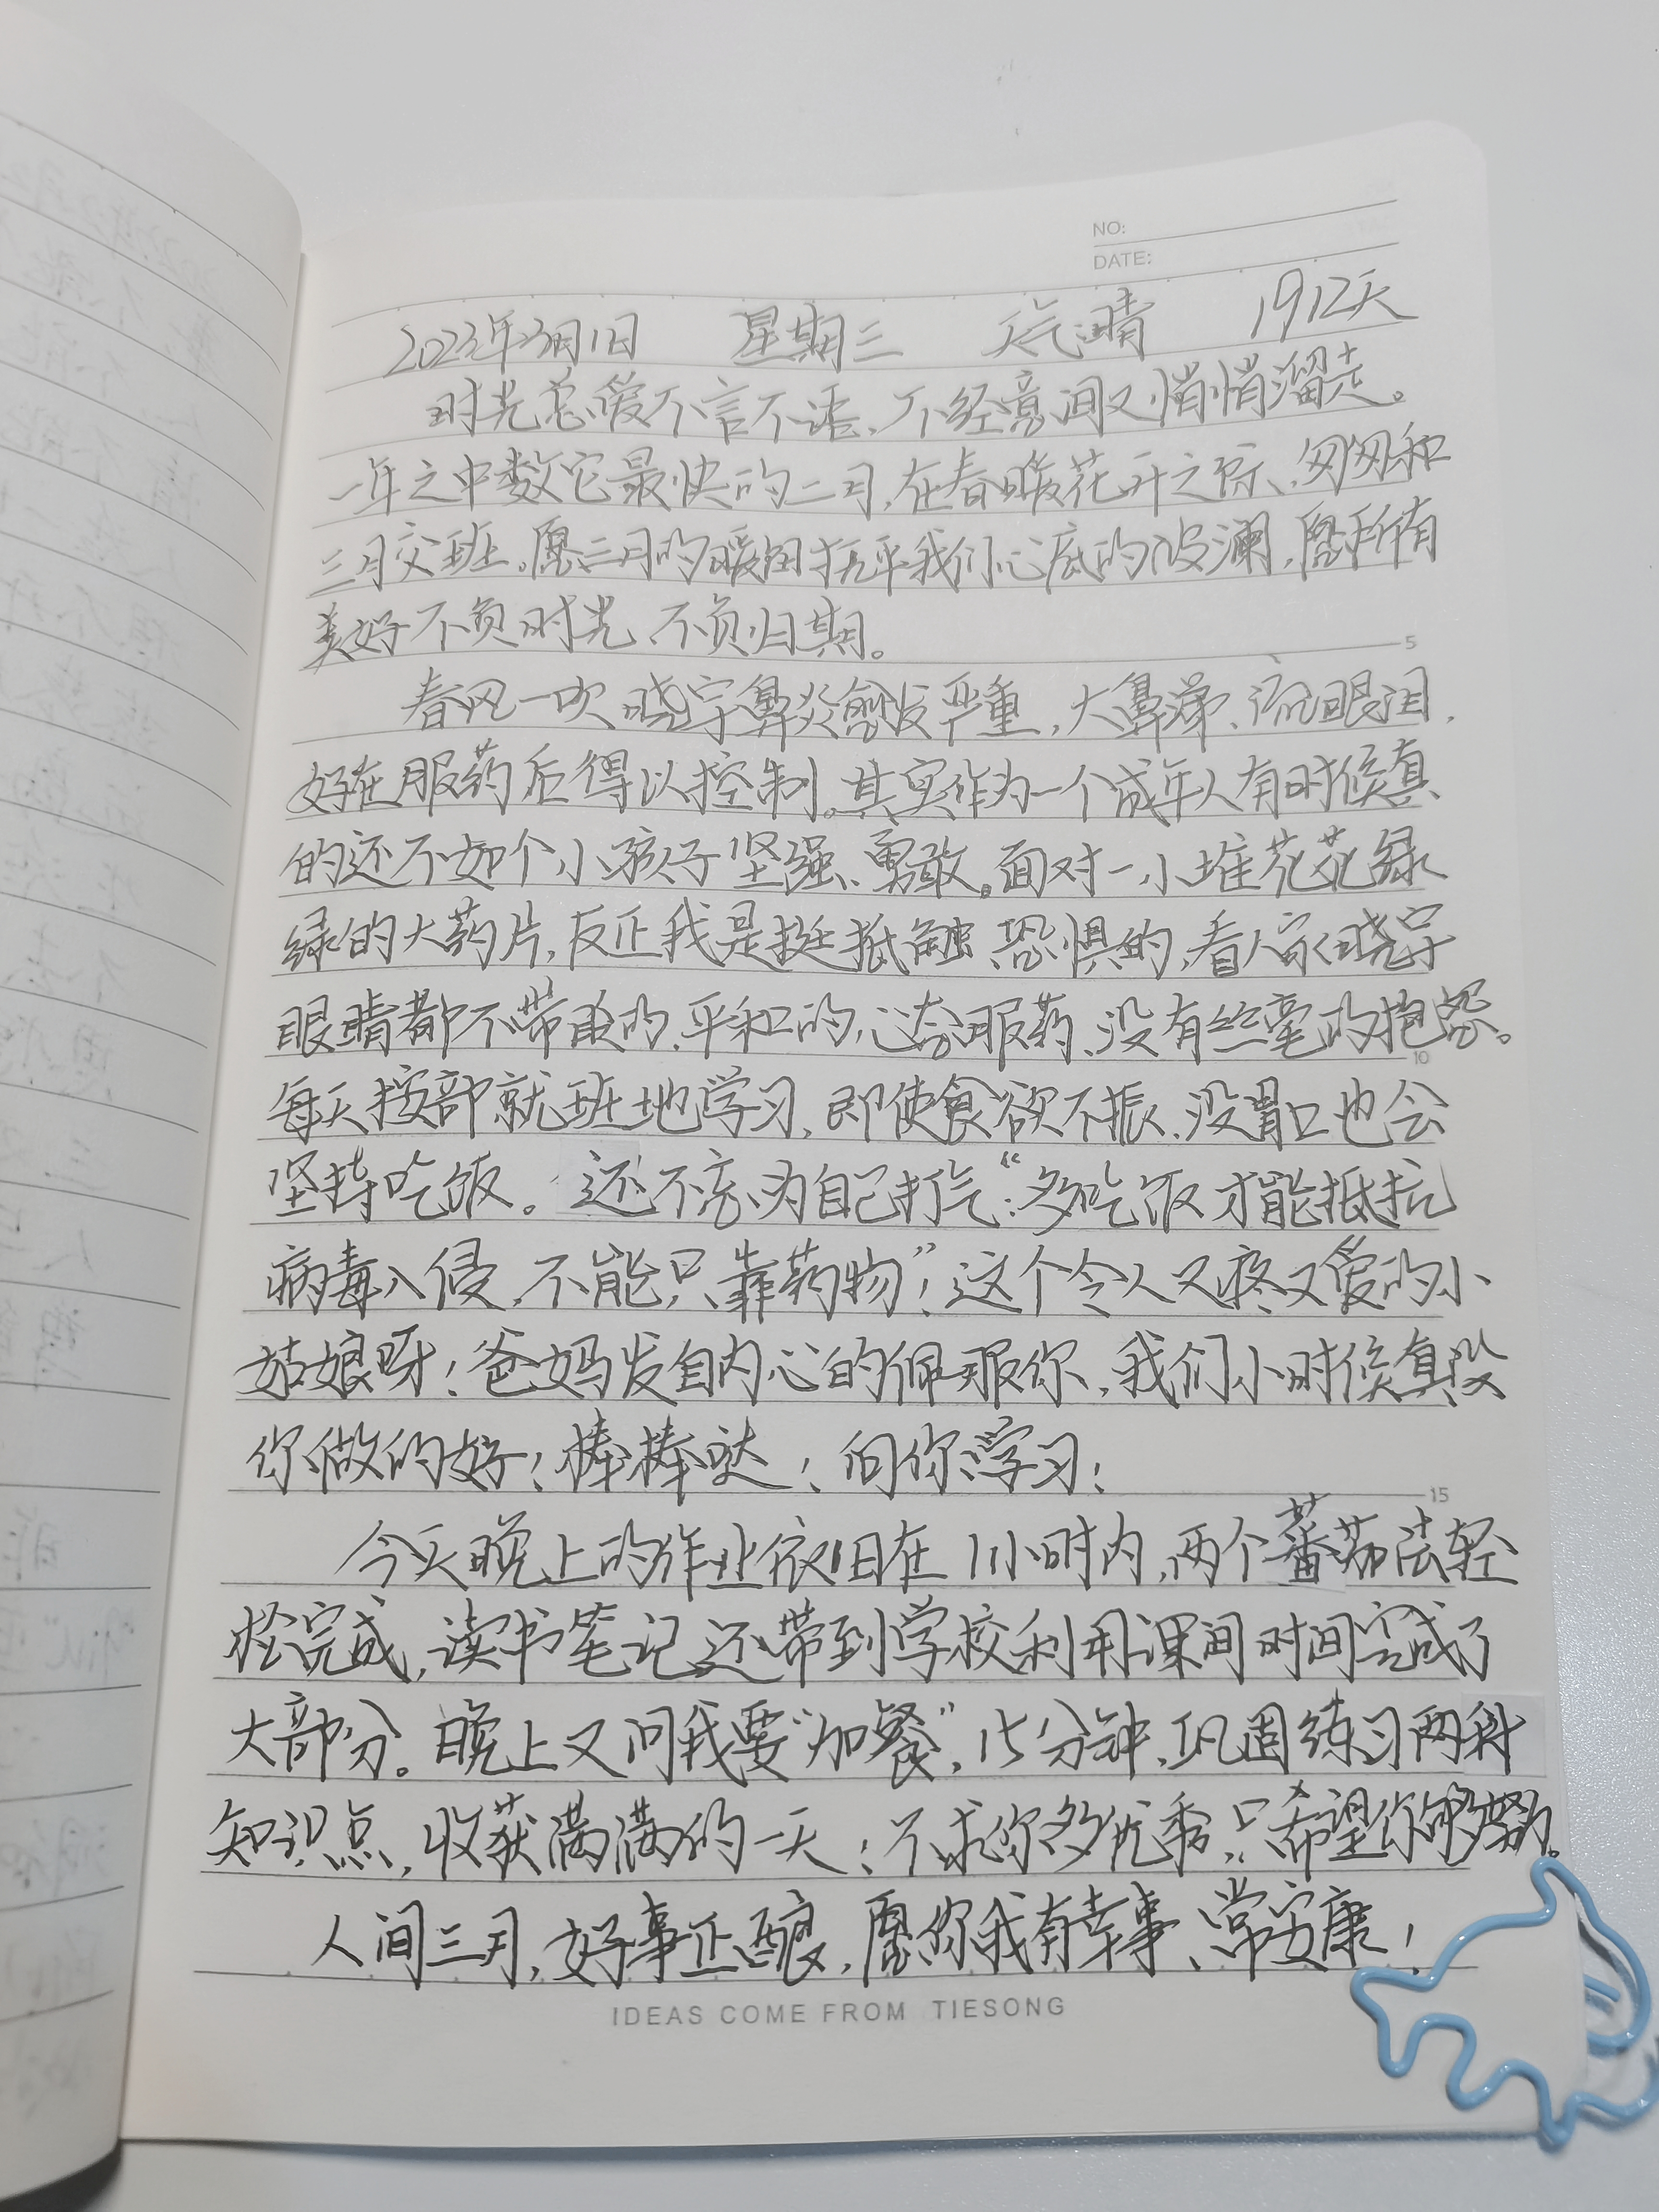 NO:
DATE:
2023年3月1日 星期三 天气:晴 1912天
时光总爱不言不语、不经意间又悄悄溜走。
一年之中数它最快的二月,在春暖花开之际、匆匆和
三月交班。愿三月的暖阳抚平我们心底的波澜,愿所有
美好不负时光、不负归期。
春风一吹 晓宇鼻炎愈发严重,大鼻涕、流眼泪,
好在服药后得以控制。其实作为一个成年人有时候真
的还不如个小孩子坚强、勇敢。面对一小堆花花绿
绿的大药片,反正我是挺抵触、恐惧的,看人家晓宇
眼睛都不带眨的、平和的心态服药、没有丝毫的抱怨。
每天按部就班地学习,即使食欲不振、没胃口也会
坚持吃饭。还不忘为自己打气:“多吃饭才能抵抗
病毒入侵,不能只靠药物”!这个令人又疼又爱的小
姑娘呀!爸妈发自内心的佩服你,我们小时候真没
你做的好!棒棒哒!向你学习!
今天晚上的作业依旧在1小时内,两个蕃茄法轻
松完成,读书笔记还带到学校利用课间时间完成了
大部分。晚上又问我要“加餐”,15分钟,巩固练习两科
知识点,收获满满的一天!不求你多优秀,只希望你够努力。
人间三月,好事正酿,愿你我有幸事、常安康!
5
10
15
IDEAS COME FROM TIESONG